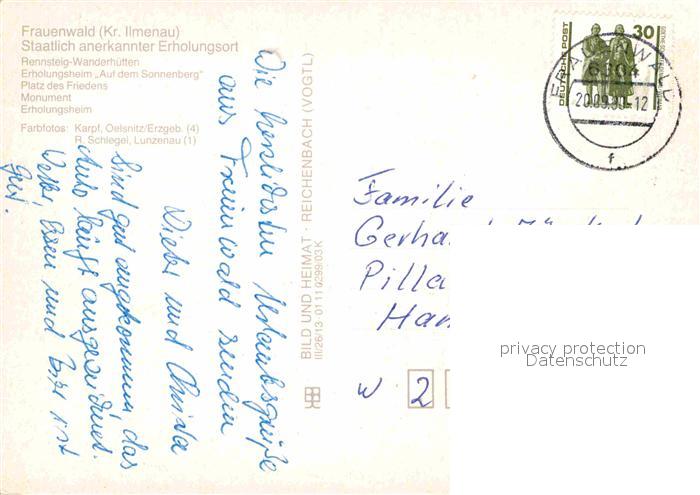 Frauenwald (Kr. Ilmenau)
Staatlich anerkannter Erholungsort
Rennsteig-Wanderhütten
Erholungsheim „Auf dem Sonnenberg“
Platz des Friedens
Monument
Erholungsheim
Farbfotos: Karpf, Oelsnitz/Erzgeb. (4)
R. Schlegel, Lunzenau (1)
Die herzlichsten Urlaubsgrüße
aus Frauenwald senden
und Christa
Sind gut angekommen, das
Auto läuft ausgezeichnet.
Wetter, Essen und ist
gut.
BILD UND HEIMAT · REICHENBACH (VOGTL)
III/26/13 · 01 11 0299/03 K
DEUTSCHE POST
30
FRAUENWALD
6304
20.09.90-12
f
Familie
Gerha
Pilla
Ham
W 2
privacy protection
Datenschutz